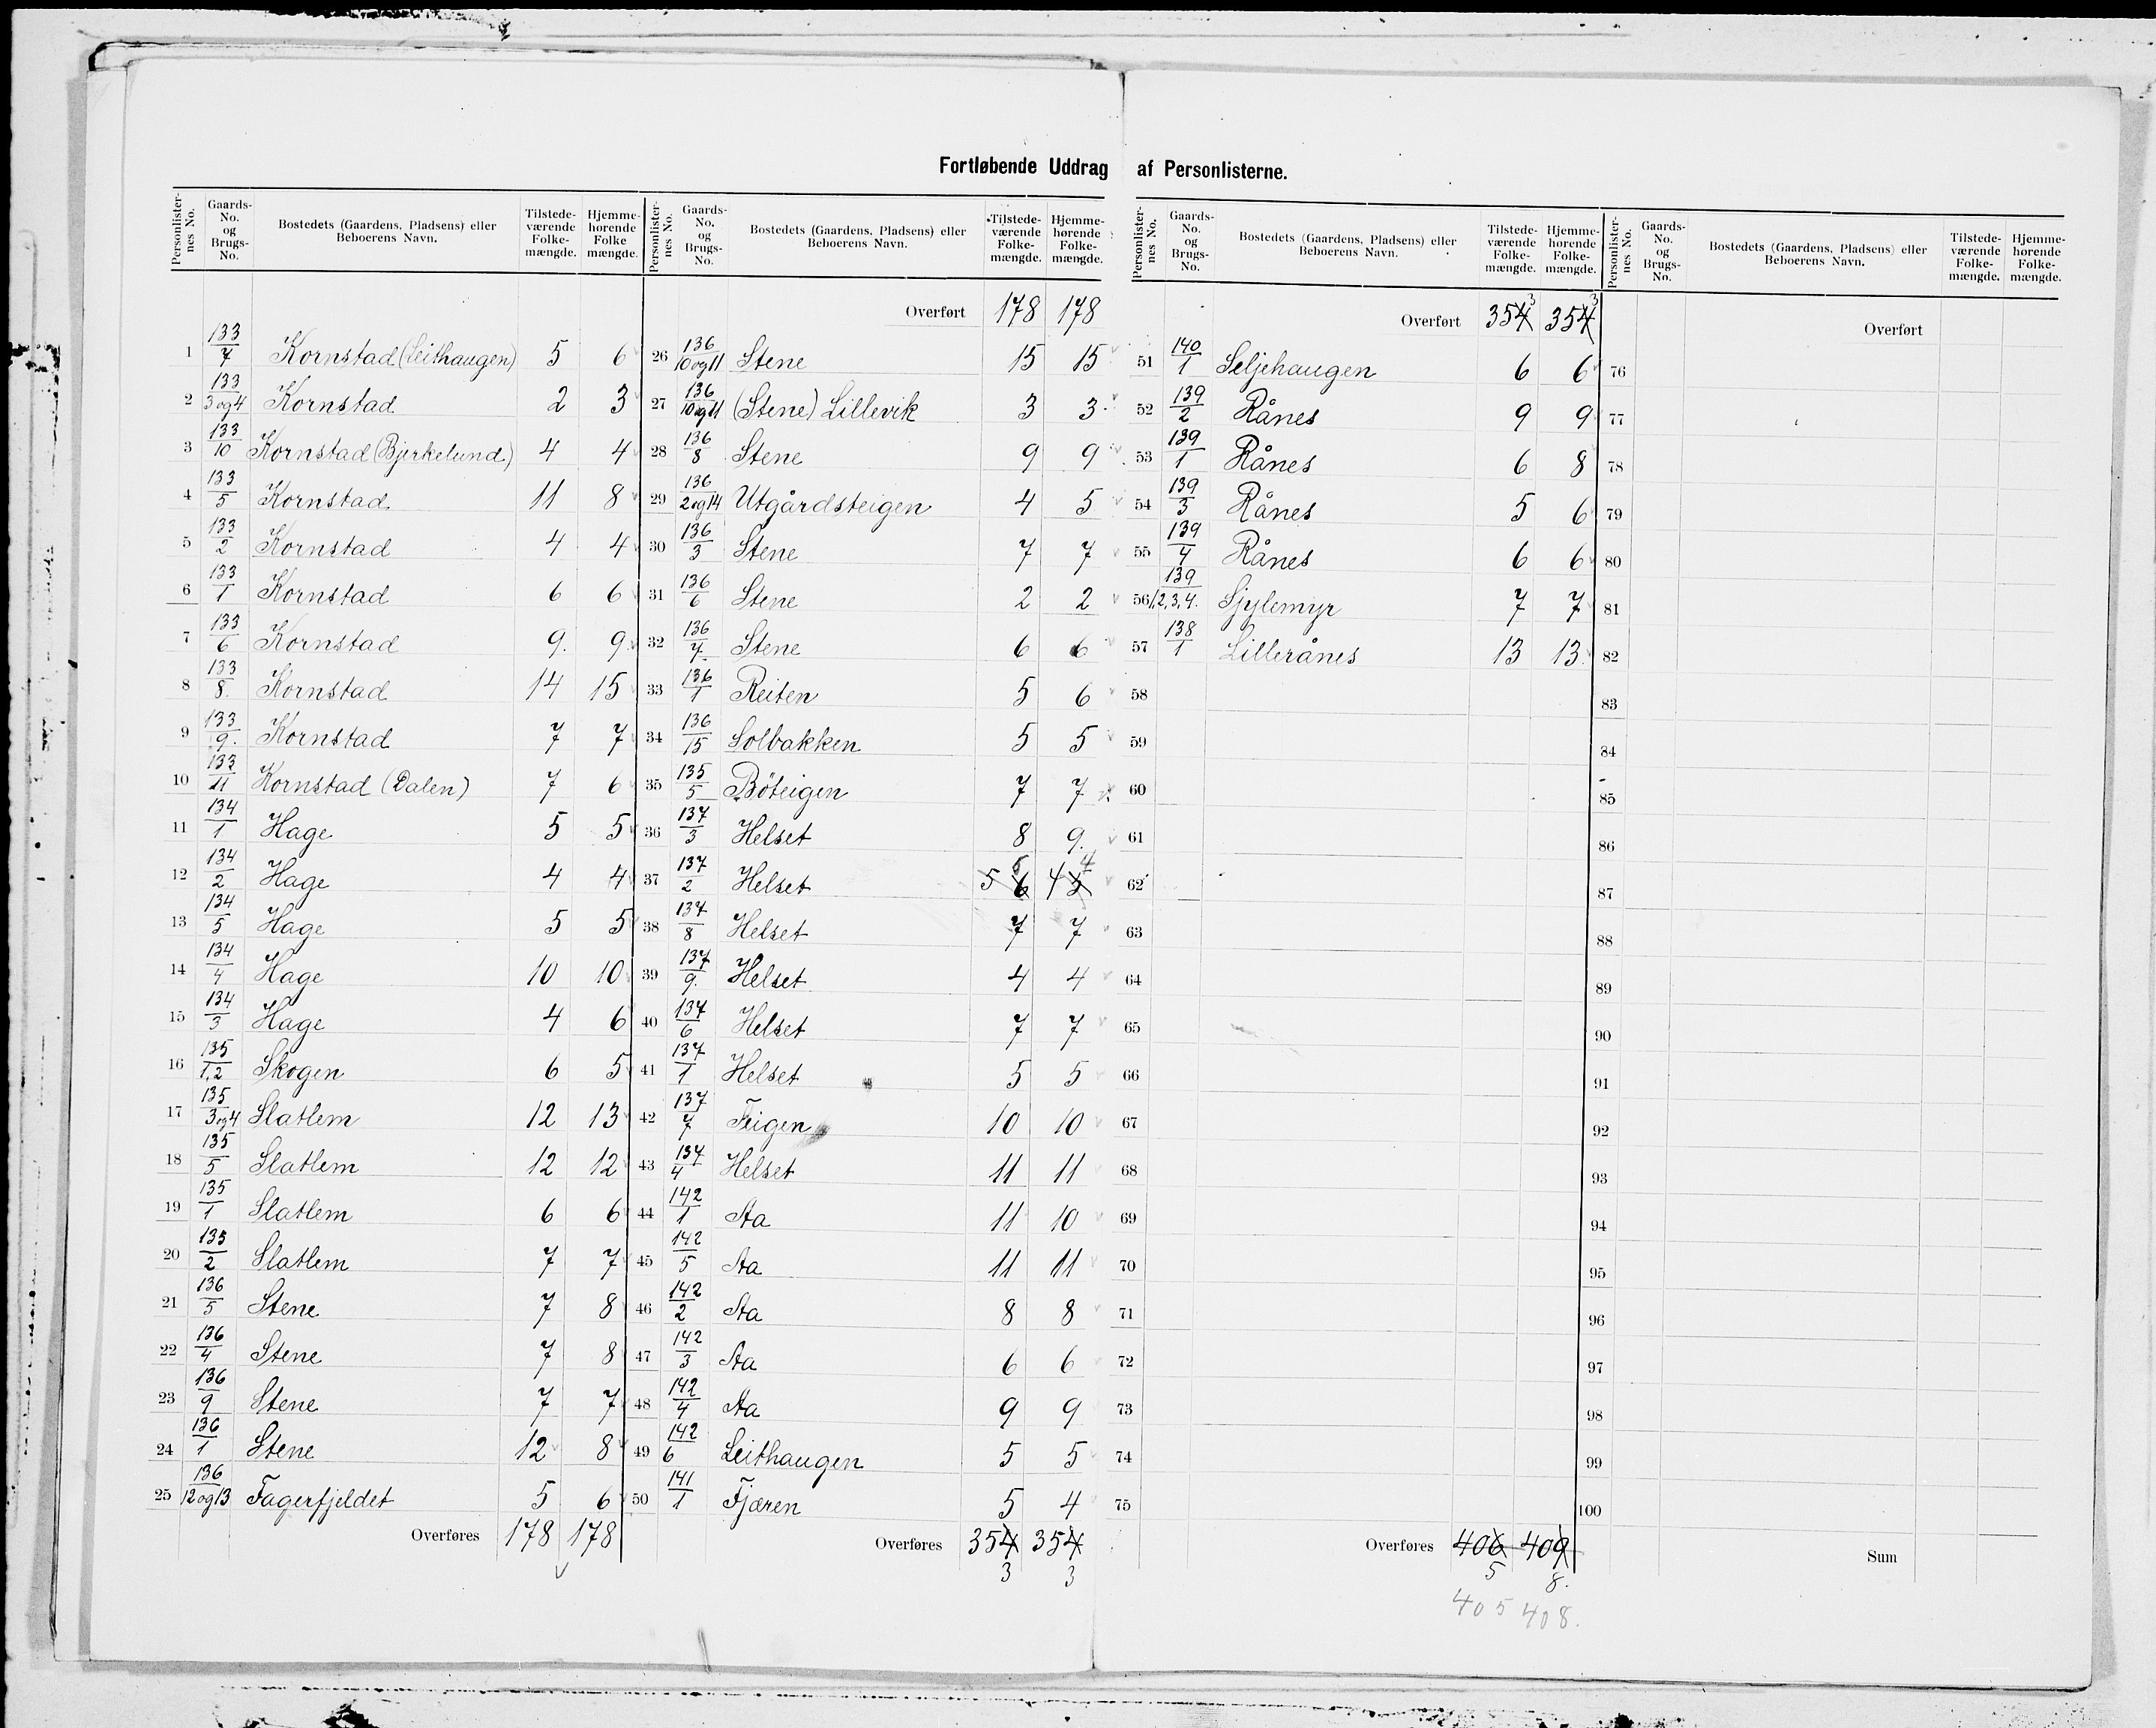 Fortløbende Uddrag af Personlisterne.
Personlisternes No. | Gaards-No. og Brugs-No. | Bostedets (Gaardens, Pladsens) eller Beboerens Navn. | Tilstedeværende Folkemængde. | Hjemmehørende Folkemængde.
1 133/7 Kornstad (Leithaugen) 5 6
2 133/3 og 4 Kornstad 2 3
3 133/10 Kornstad (Bjerkelund) 4 4
4 133/5 Kornstad 11 8
5 133/2 Kornstad 4 4
6 133/1 Kornstad 6 6
7 133/6 Kornstad 9. 9
8 133/8. Kornstad 14 15
9 133/9. Kornstad 7 7
10 133/11 Kornstad (Dalen) 7 6
11 134/1 Hage 5 5
12 134/2 Hage 4 4
13 134/5 Hage 5 5
14 134/4 Hage 10 10
15 134/3 Hage 4 6
16 135/1,2 Skogen 6 5
17 135/3 og 4 Slatlem 12 13
18 135/5 Slatlem 12 12
19 135/1 Slatlem 6 6
20 135/2 Slatlem 7 7
21 136/5 Stene 7 8
22 136/4 Stene 7 8
23 136/9 Stene 7 7
24 136/1 Stene 12 8
25 136/12 og 13 Fagerfjeldet 5 6
Overføres 178 178
Personlisternes No. | Gaards-No. og Brugs-No. | Bostedets (Gaardens, Pladsens) eller Beboerens Navn. | Tilstedeværende Folkemængde. | Hjemmehørende Folkemængde.
Overført 178 178
26 136/10 og 11 Stene 15 15
27 136/10 og 11 (Stene) Lillevik 3 3
28 136/8 Stene 9 9
29 136/2 og 14 Utgårdsteigen 4 5
30 136/3 Stene 7 7
31 136/6 Stene 2 2
32 136/7. Stene 6 6
33 136/1 Reiten 5 6
34 136/15 Solbakken 5 5
35 135/5 Böteigen 7 7
36 137/3 Helset 8 9.
37 137/2 Helset 5 4
38 137/8 Helset 7 7
39 137/9. Helset 4 4
40 137/6 Helset 7 7
41 137/1 Helset 5 5
42 137/7 Teigen 10 10
43 137/4 Helset 11 11
44 142/1 Aa 11 10
45 142/5 Aa 11 11
46 142/2 Aa 8 8
47 142/3 Aa 6 6
48 142/4 Aa 9 9
49 142/6 Leithaugen 5 5
50 141/1 Fjæren 5 4
Overføres 354 354
3 3
Personlisternes No. | Gaards-No. og Brugs-No. | Bostedets (Gaardens, Pladsens) eller Beboerens Navn. | Tilstedeværende Folkemængde. | Hjemmehørende Folkemængde.
3 3
Overført 354 354
51 140/1 Seljehaugen 6 6
52 139/2 Rånes 9 9
53 139/1 Rånes 6 8
54 139/3 Rånes 5 6
55 139/4 Rånes 6 6
56 139/1,2,3,4. Sjylemyr 7 7
57 138/1 Lillerånes 13 13
58
59
60
61
62
63
64
65
66
67
68
69
70
71
72
73
74
75
Overføres 406 409
5 8.
405 408.
Personlisternes No. | Gaards-No. og Brugs-No. | Bostedets (Gaardens, Pladsens) eller Beboerens Navn. | Tilstedeværende Folkemængde. | Hjemmehørende Folkemængde.
Overført
76
77
78
79
80
81
82
83
84
85
86
87
88
89
90
91
92
93
94
95
96
97
98
99
100
Sum